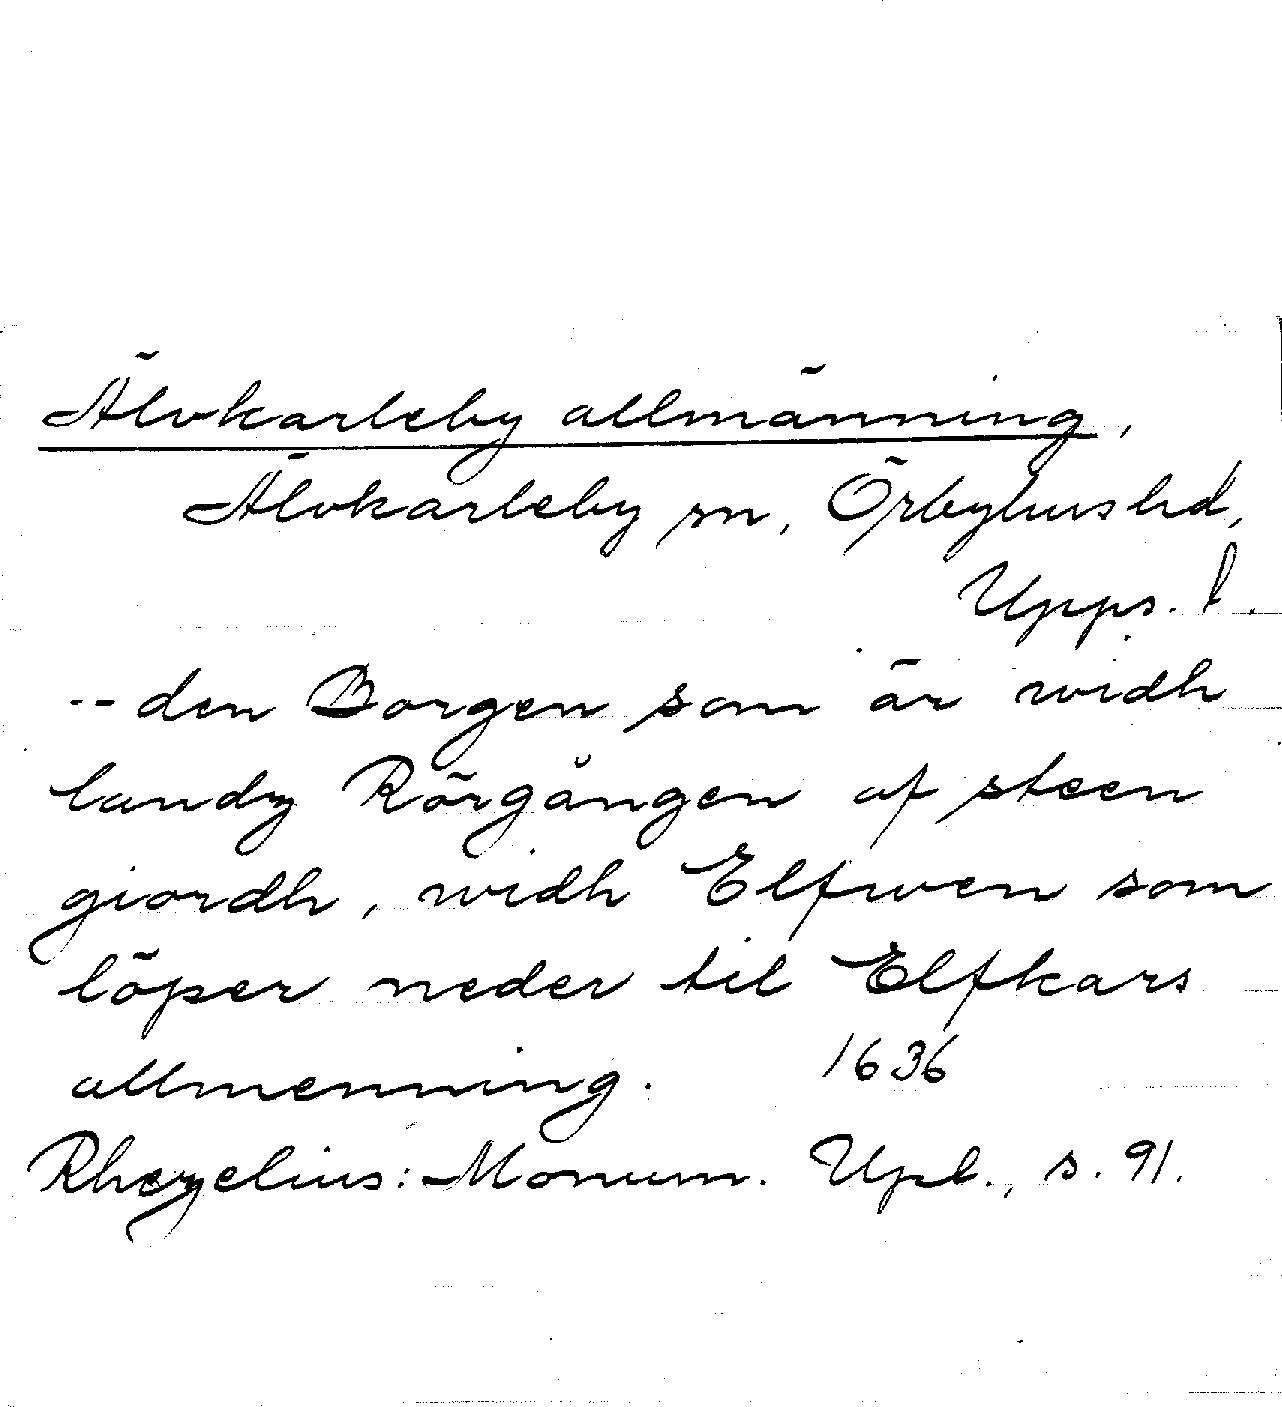 Älvkarleby allmänning,
Älvkarleby sn, Örbyhus hd,
Upps. l.
-- den Borgen som är widh
landz Rörgången af steen
giordh, widh Elfwen som
löper neder til Elfkars
allmenning. 1636
Rhezelius: Monum. Upl., s. 91.